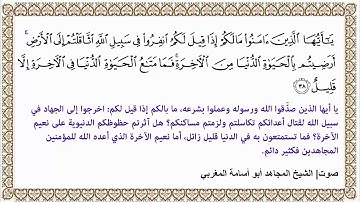 يَٰٓأَيُّهَا ٱلَّذِينَ ءَامَنُوا۟ مَا لَكُمْ إِذَا قِيلَ لَكُمُ ٱنفِرُوا۟ فِى سَبِيلِ ٱللَّهِ ٱثَّاقَلْتُمْ إِلَى ٱلْأَرْضِ ۚ
أَرَضِيتُم بِٱلْحَيَوٰةِ ٱلدُّنْيَا مِنَ ٱلْءَاخِرَةِ ۚ فَمَا مَتَٰعُ ٱلْحَيَوٰةِ ٱلدُّنْيَا فِى ٱلْءَاخِرَةِ إِلَّا
قَلِيلٌ ٣٨
يا أيها الذين صدَّقوا الله ورسوله وعملوا بشرعه، ما بالكم إذا قيل لكم: اخرجوا إلى الجهاد في
سبيل الله لقتال أعدائكم تكاسلتم ولزمتم مساكنكم؟ هل آثرتم حظوظكم الدنيوية على نعيم
الآخرة؟ فما تستمتعون به في الدنيا قليل زائل، أما نعيم الآخرة الذي أعده الله للمؤمنين
المجاهدين فكثير دائم.
صوت| الشيخ المجاهد أبو أسامة المغربي